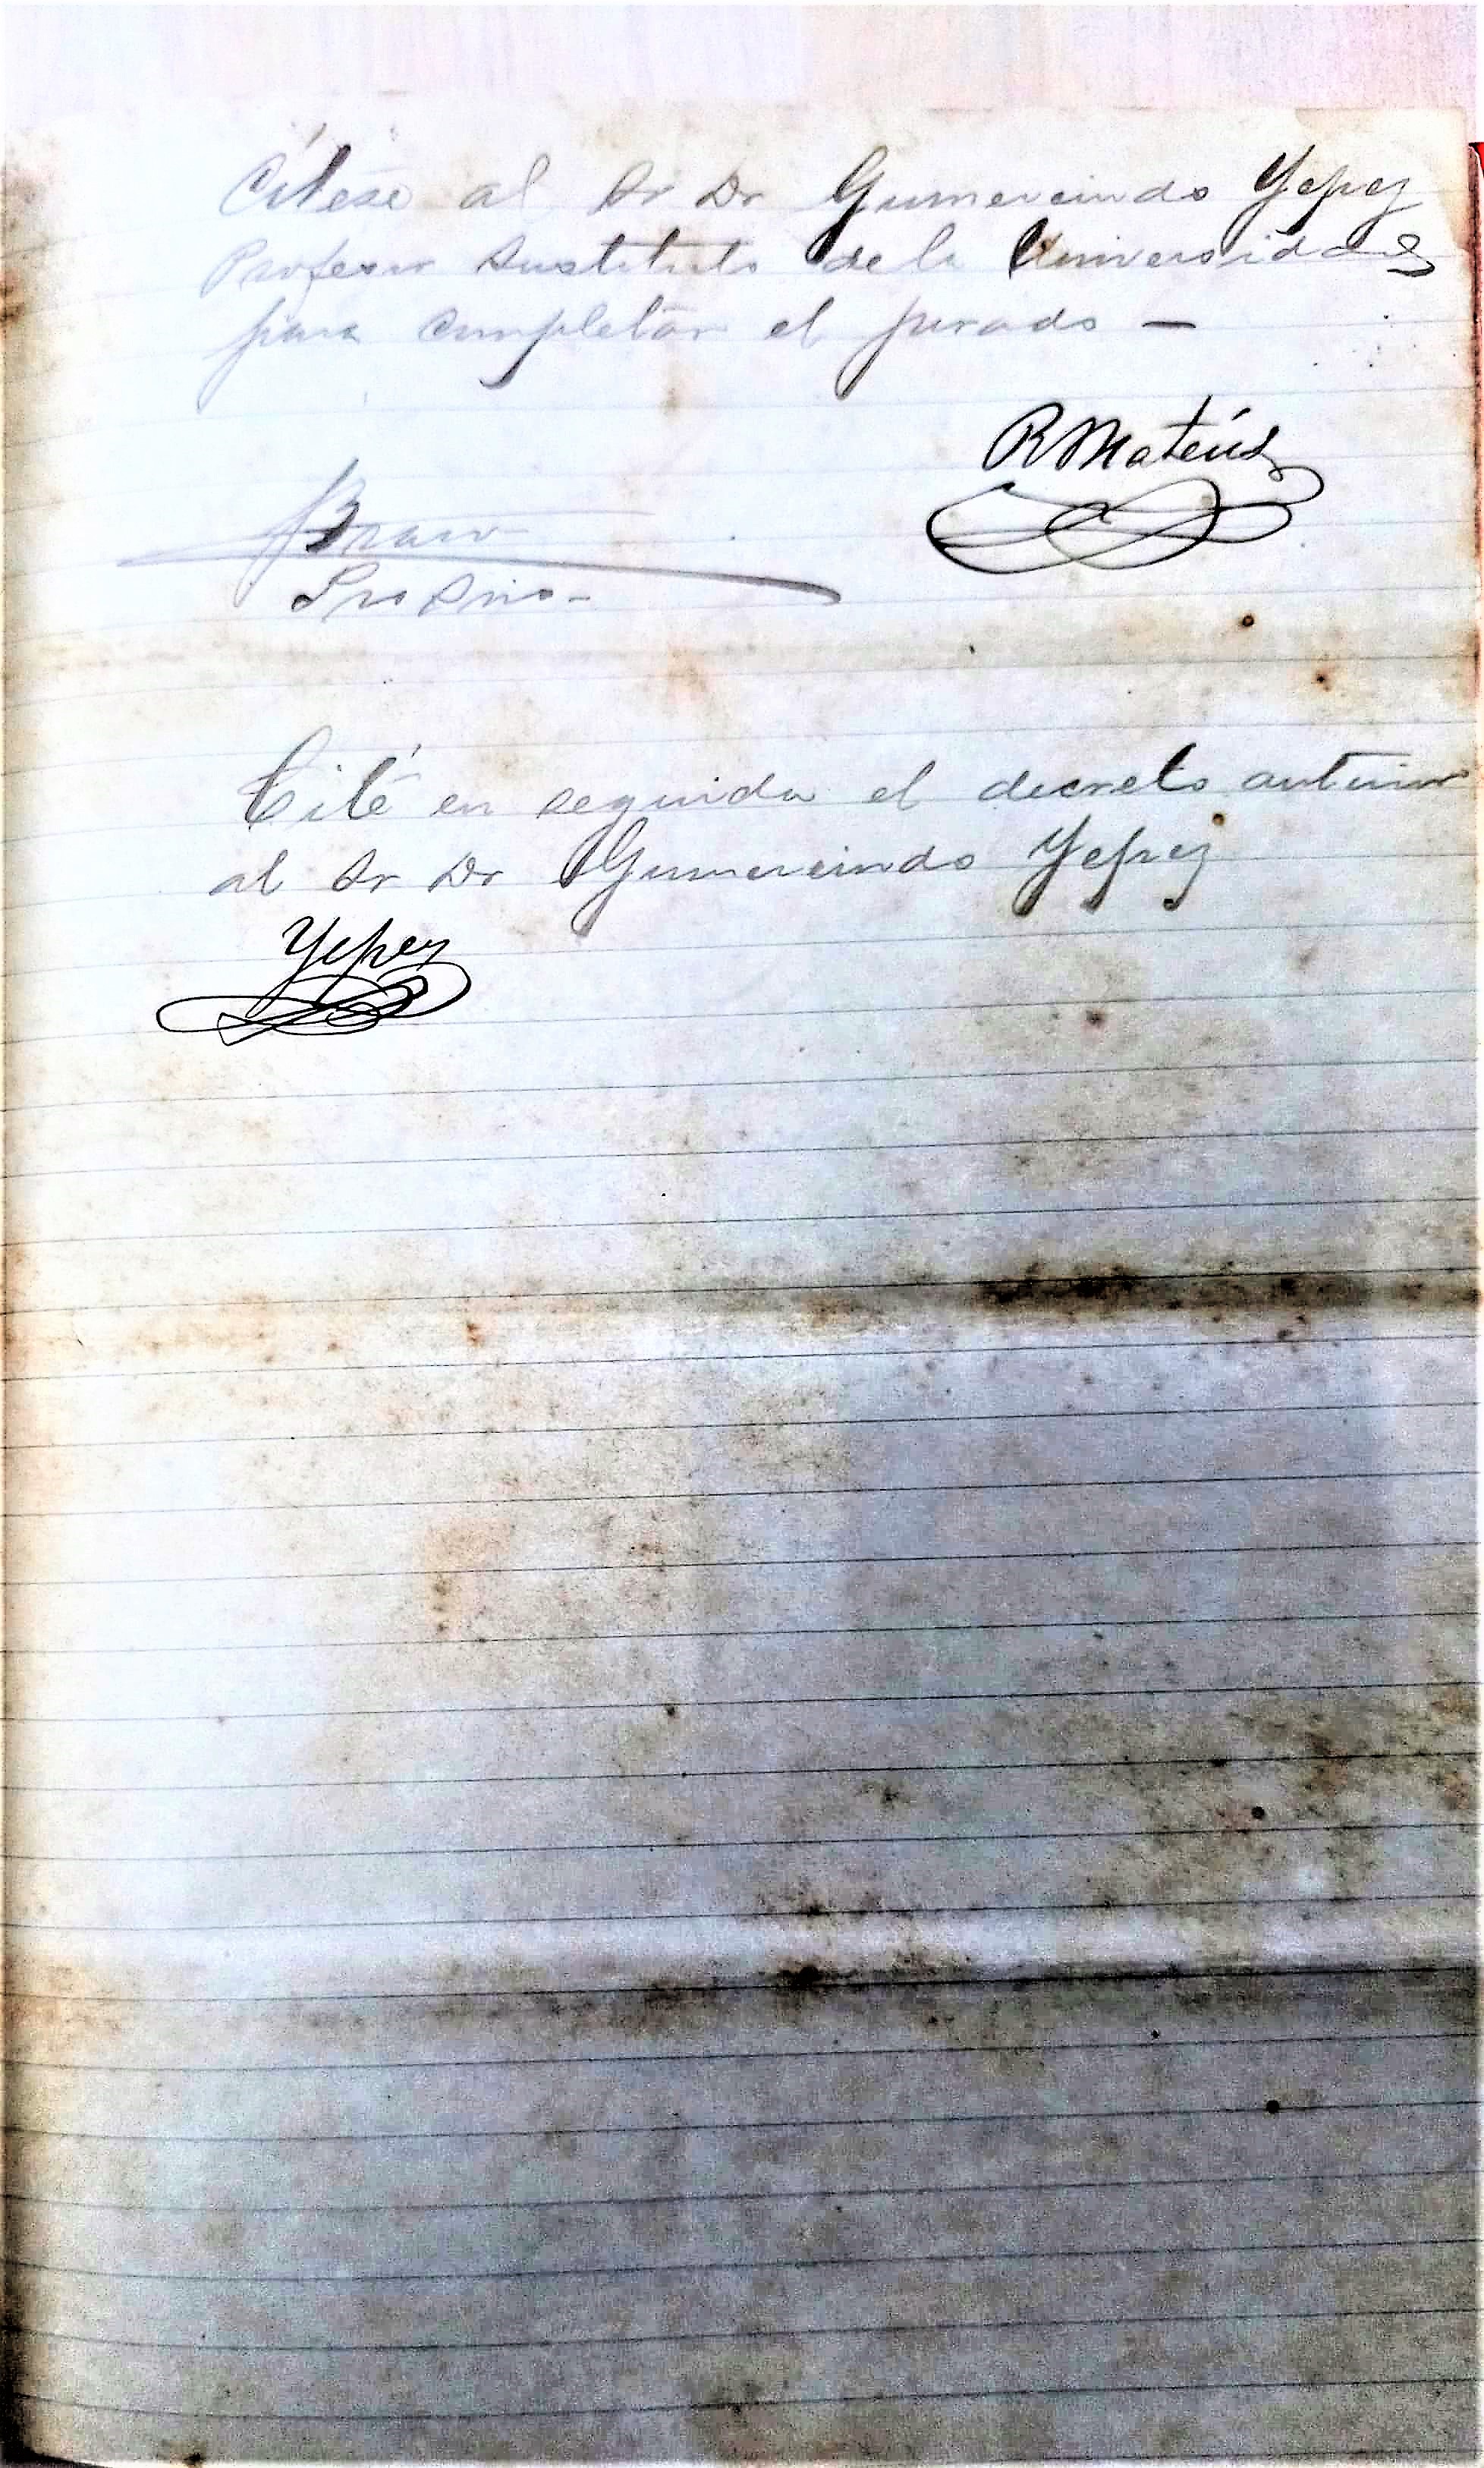 Cítese al Sr Dr Gumercindo Yepez
Profesor Sustituto de la Universidad
para completar el jurado —
R Mateús
Bravo
Srio -
Cité en seguida el decreto anterior
al Sr Dr Gumercindo Yepez
Yepez